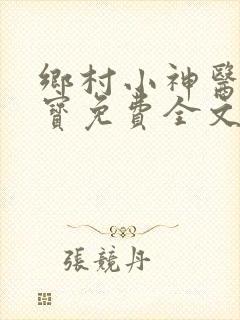 鄉村小神醫
寶免費全文
張競丹